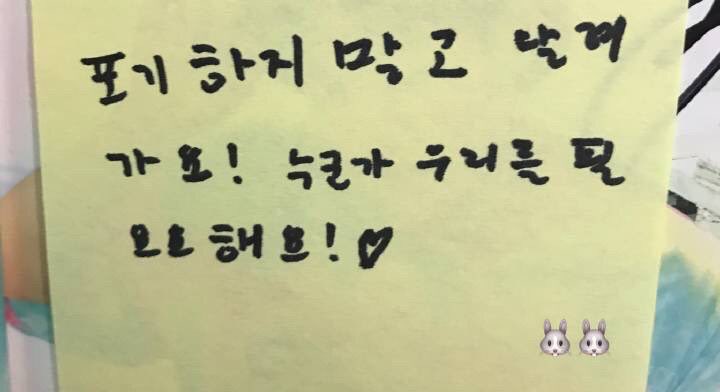 포기하지 말고 달려
가요! 누군가 우리를 필
요요해요!♡